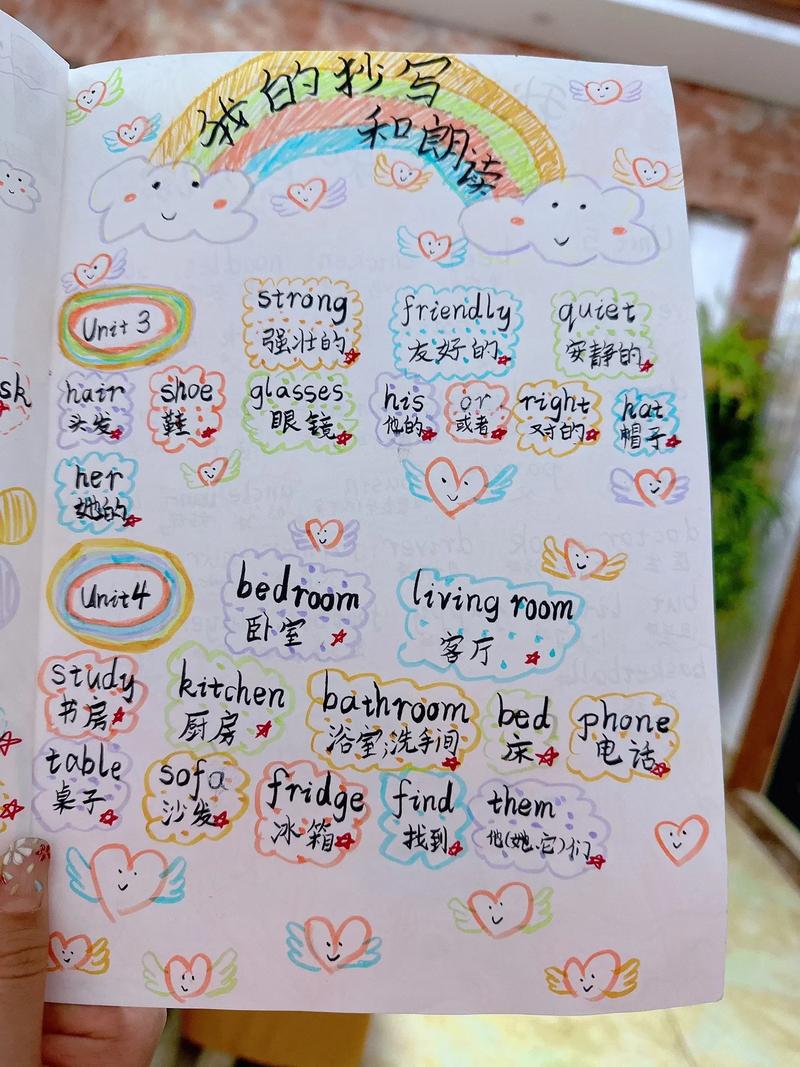 我的抄写
和朗读
Unit 3
strong
强壮的
friendly
友好的
quiet
安静的
hair
头发
shoe
鞋
glasses
眼镜
his
他的
or
或者
right
对的
hat
帽子
her
她的
Unit4
bedroom
卧室
living room
客厅
study
书房
kitchen
厨房
bathroom
浴室;洗手间
bed
床
phone
电话
table
桌子
sofa
沙发
fridge
冰箱
find
找到
them
他(她、它)们
sk